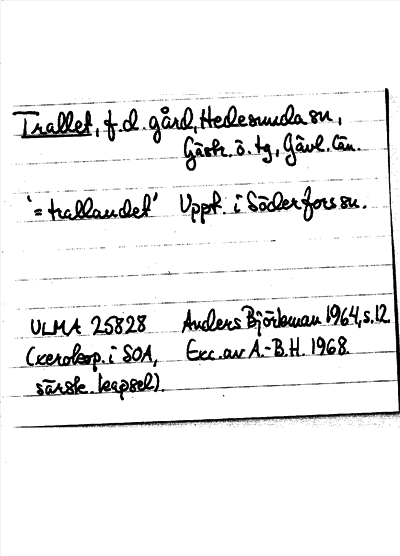 Trallet, f.d. gård, Hedesunda sn,
Gästr. ö. tg, Gävl. län.
'= trallandet' Uppt. i Söderfors sn.
ULMA 25828 Anders Björkman 1964, s.12.
(xerokop. i SOA, Exc. av A.-B.H. 1968.
särsk. kapsel).